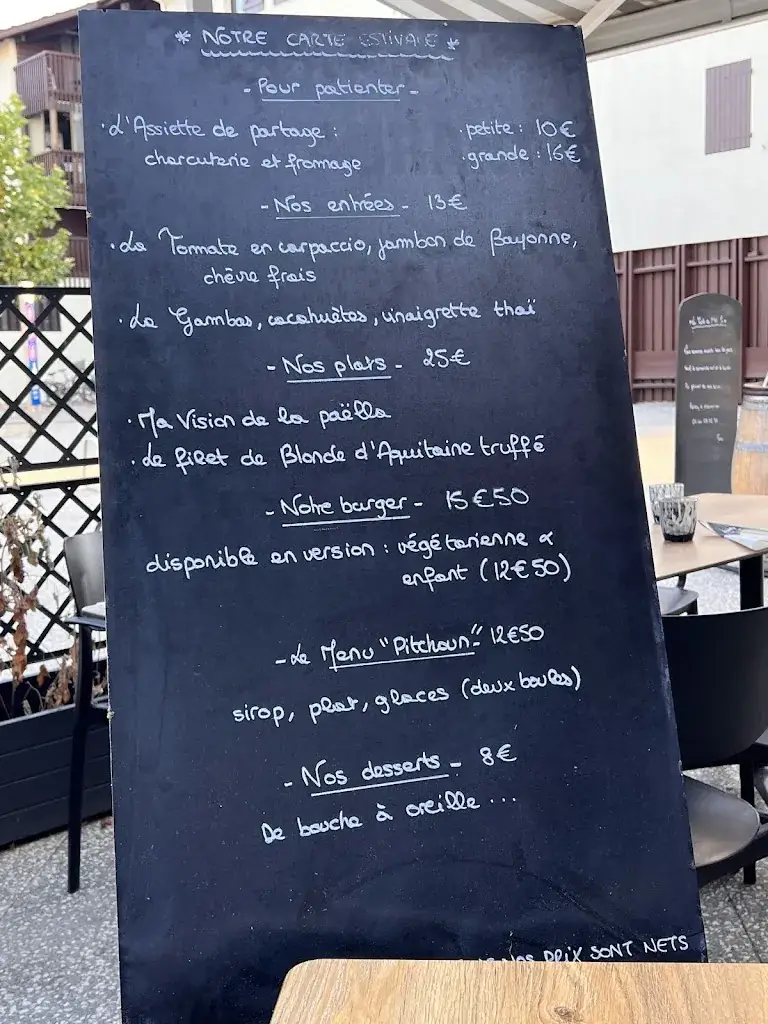 * NOTRE CARTE ESTIVALE *
- Pour patienter -
· L'Assiette de partage : · petite : 10€
charcuterie et fromage · grande : 16€
- Nos entrées - 13€
· La Tomate en carpaccio, jambon de Bayonne,
chèvre frais
· La Gambas, cacahuètes, vinaigrette thaï
- Nos plats - 25€
· Ma Vision de la paëlla
· Le filet de Blonde d'Aquitaine truffé
- Notre burger - 15€50
disponible en version : végétarienne &
enfant (12€50)
- Le Menu "Pitchoun" 12€50
sirop, plat, glaces (deux boules)
- Nos desserts - 8€
De bouche à oreille ...
NOS PRIX SONT NETS